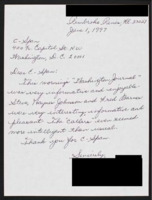 Pembroke Pines, FL
June 1, 1997
C-Span
400 N. Capitol St. NW
Washington, D.C. 20001
Dear C-Span:
This morning's "Washington Journal"
was very informative and enjoyable.
Steve, Haynes Johnson and Fred Barnes
was very interesting, informative and
pleasant. The "callers" even seemed
more intelligent than usual.
Thank you for C-Span.
Sincerely,